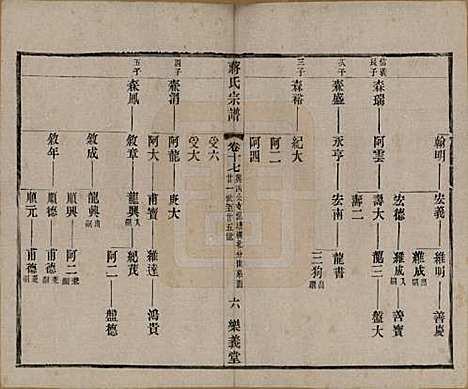 翰明 宏義 維明 善慶
宏德 維成 善寶
信義長子 森瑞 阿雲 壽大 龍三 盤大
壽二
次子 森盛 永亨 宏南 龍書 三狗
三子 森裕 紀大
阿二
阿四
蔣氏宗譜
卷十七
廿一世至廿五世
六
樂義堂
受六
受大
四子 森渭 阿龍 庚大
阿大 甫寶 維達 鴻貴
五子 森鳳 敘章 龍興 紀茂
阿二 盤德
敘成 龍興 阿二
順興 甫德
敘年 順元 甫德